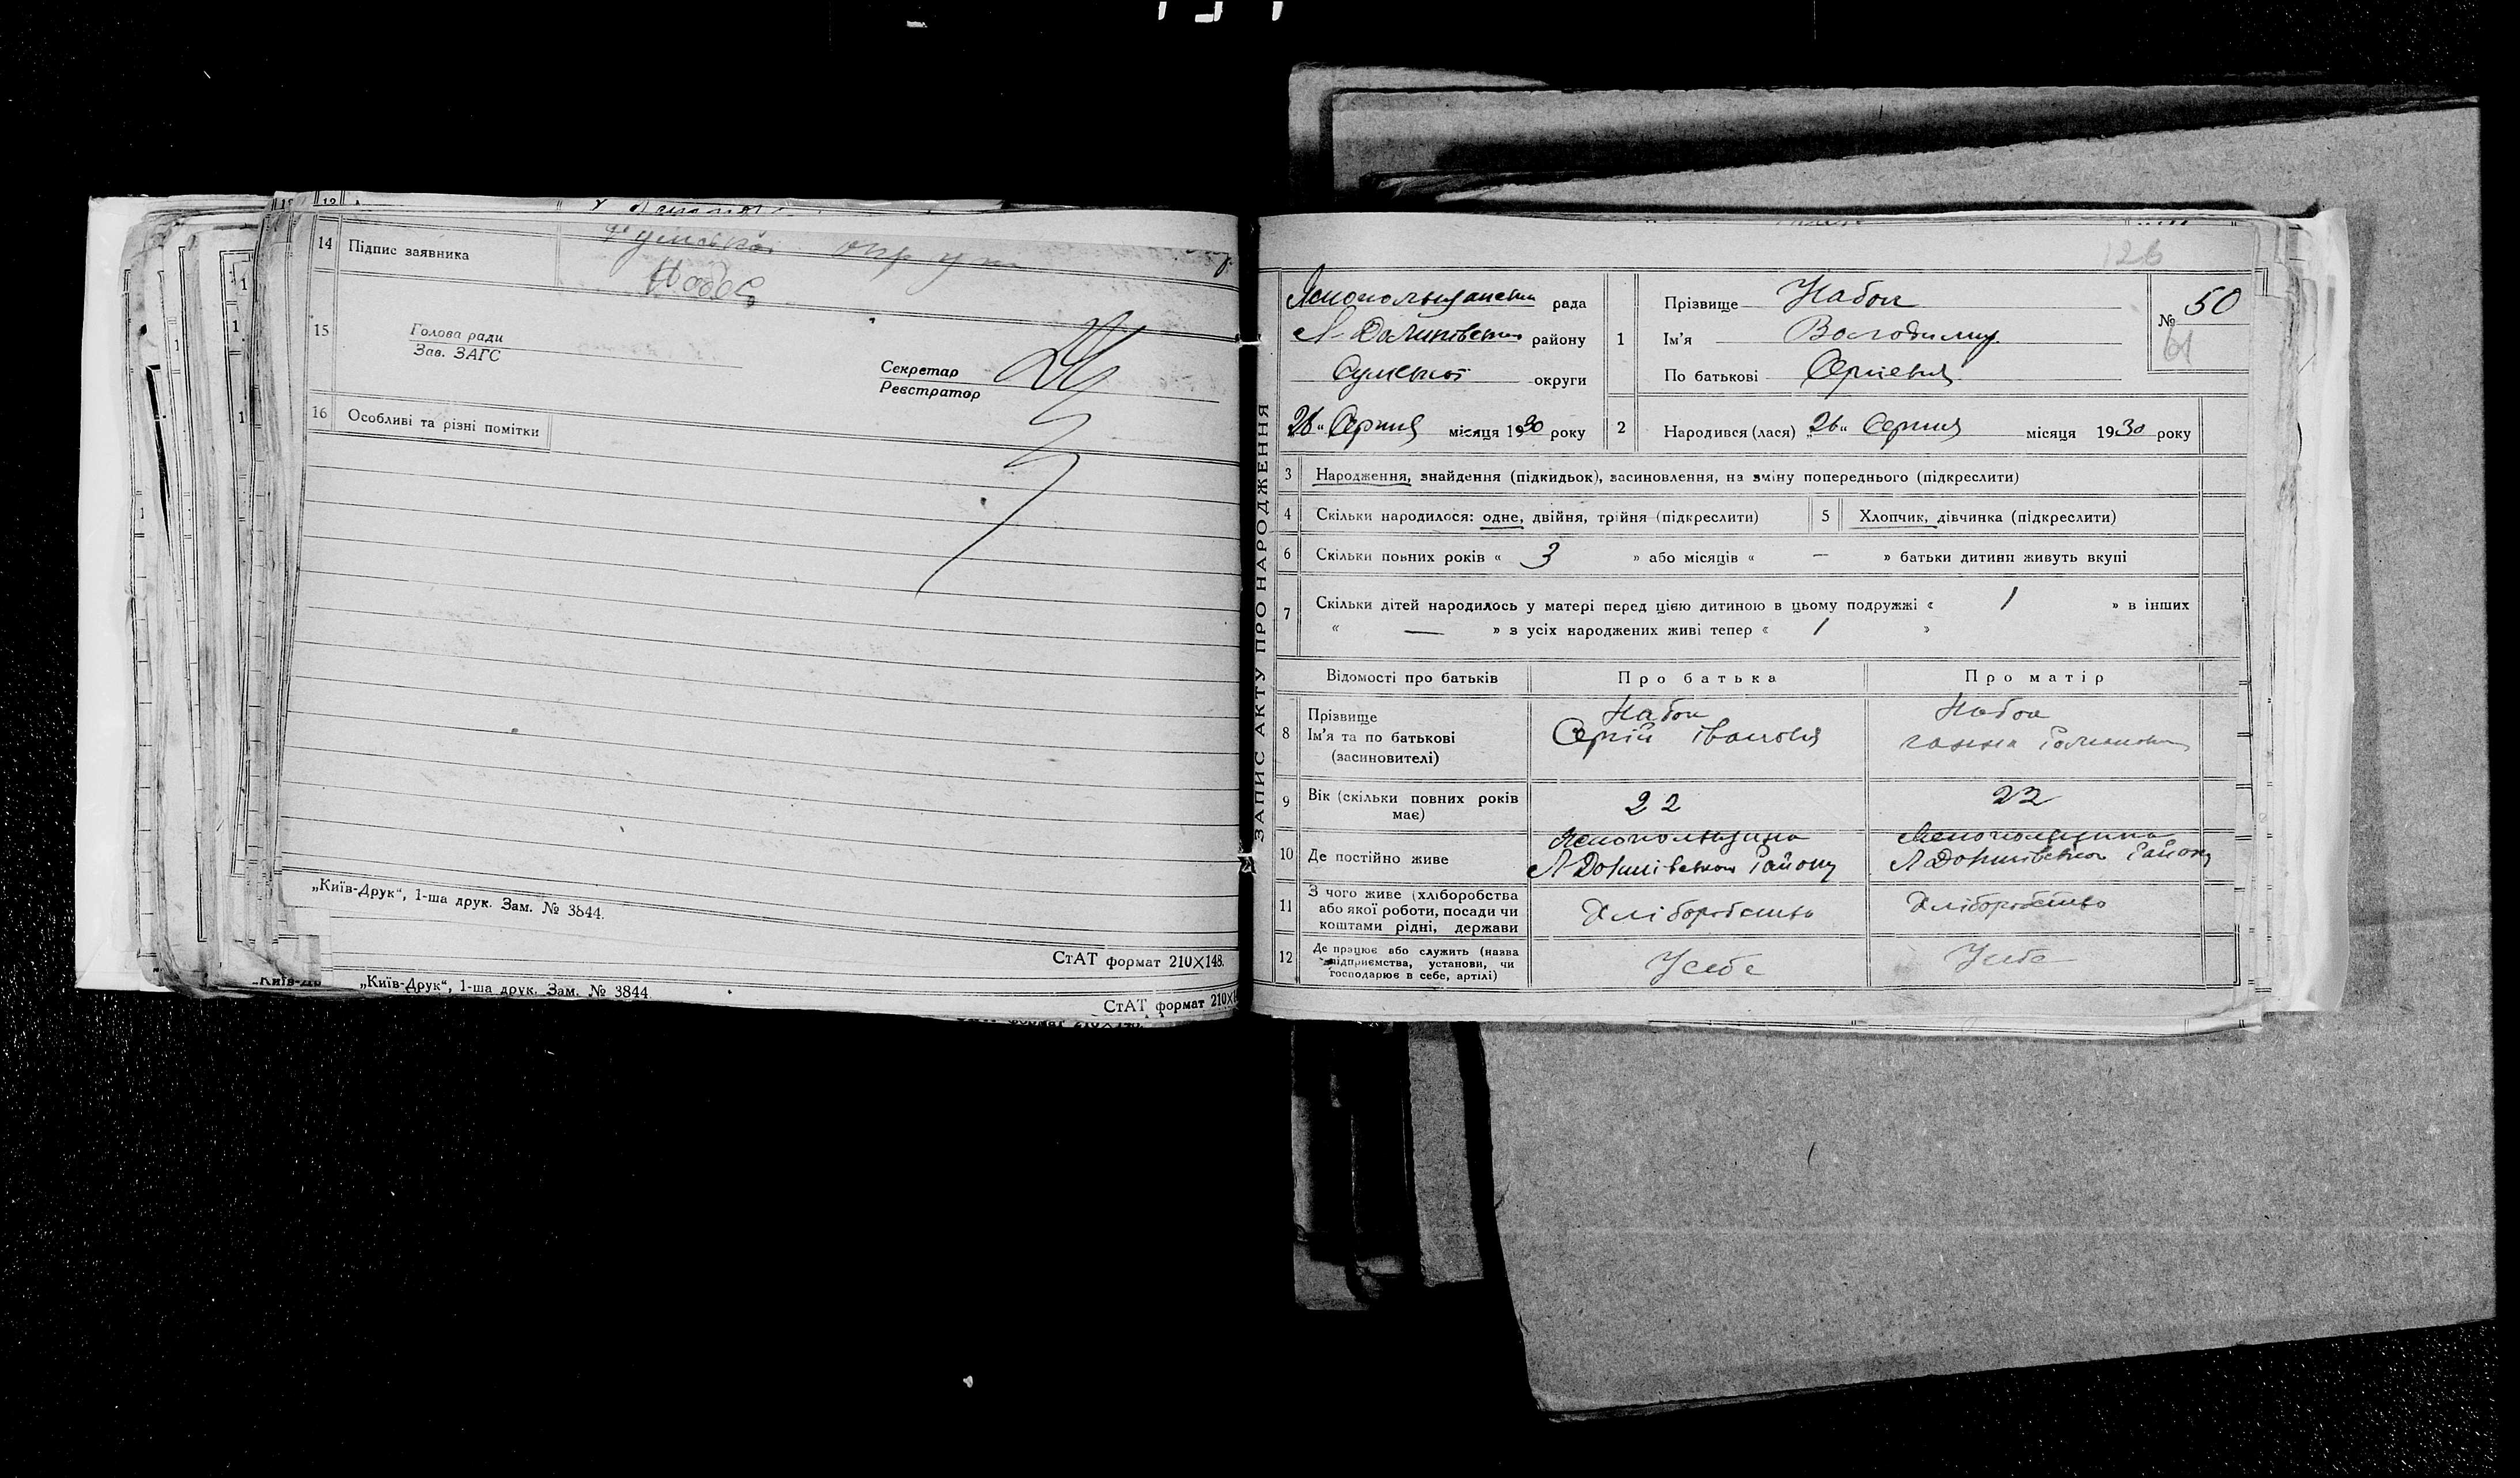 14 Підпис заявника
округи
15
Голова ради
Зав. ЗАГС
Секретар
Реєстратор
16 Особливі та різні помітки
„Київ-Друк“, 1-ша друк. Зам. № 3844.
СтАТ формат 210×148.
„Київ-Друк“, 1-ша друк. Зам. № 3844
СтАТ формат 210×1
126
ЗАПИС АКТУ ПРО НАРОДЖЕННЯ
рада
району
Сумської округи
26 „ Серпня місяця 1930 року
1 Прізвище Набок
Ім'я Володимир
По батькові Сергієвич
№ 50
61
2 Народився (лася) „26“ Серпня місяця 1930 року
3 Народження, знайдення (підкидьок), засиновлення, на зміну попереднього (підкреслити)
4 Скільки народилося: одне, двійня, трійня (підкреслити) 5 Хлопчик, дівчинка (підкреслити)
6 Скільки повних років « 3 » або місяців « — » батьки дитини живуть вкупі
7 Скільки дітей народилось у матері перед цією дитиною в цьому подружжі « 1 » в інших
« — » з усіх народжених живі тепер « 1 »
Відомості про батьків Про батька Про матір
8 Прізвище
Ім'я та по батькові
(засиновителі)
Набок
Сергій Іванович
Набок
Ганна
9 Вік (скільки повних років
має)
22
22
10 Де постійно живе
Району
Району
11 З чого живе (хліборобства
або якої роботи, посади чи
коштами рідні, держави
Хліборобство
Хліборобство
12 Де працює або служить (назва
підприємства, установи, чи
господарює в себе, артілі)
У себе
У себе